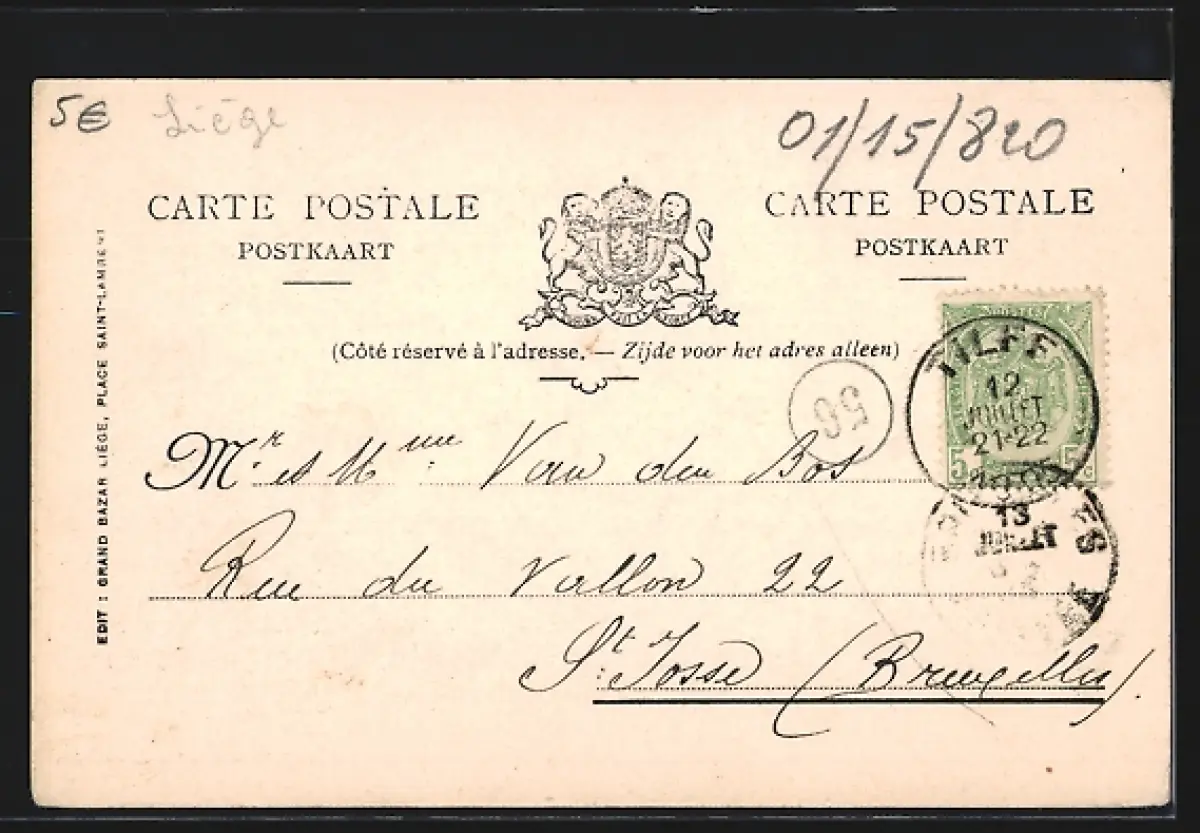 5€ Liége
01/15/820
CARTE POSTALE
POSTKAART
CARTE POSTALE
POSTKAART
(Côté réservé à l'adresse. — Zijde voor het adres alleen)
EDIT : GRAND BAZAR LIÉGE, PLACE SAINT-LAMBERT
56
TILFF
12
JUILLET
21-22
5 5
13
JUILLET
Mr. et Mme Van den Bos
Rue du Vallon 22
St. Josse (Bruxelles).